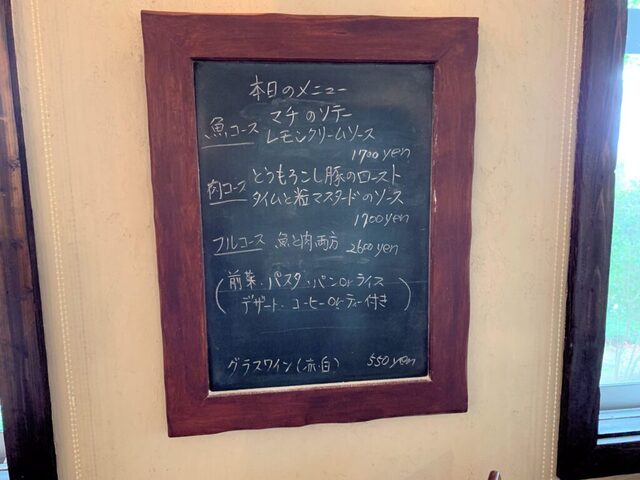 本日のメニュー
魚コース マチのソテー
レモンクリームソース
1700yen
肉コース どうもろこし豚のロースト
タイムと粒マスタードのソース
1700yen
フルコース 魚と肉両方 2600yen
(前菜・パスタ・パンorライス
デザート・コーヒーorティー付き)
グラスワイン(赤・白) 550yen